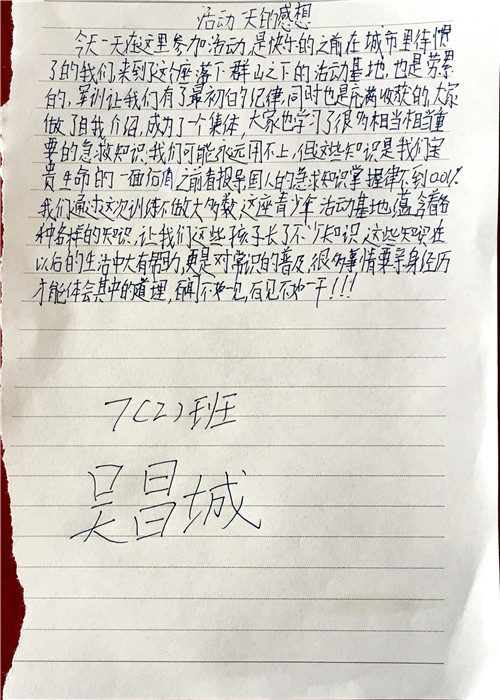 活动 天的感想
今天一天在这里参加活动,是快乐的之前在城市里待惯
了的我们,来到了这个座落于群山之下的活动基地,也是劳累
的,军训让我们有了最初的纪律,同时也是充满收获的,大家
做了自我介绍,成为了一个集体,大家也学习了很多相当相当重
要的急救知识,我们可能永远用不上,但这些知识是我们宝
贵生命的一面 之前看报导国人的急求知识掌握律不到0.01%
我们通过这次训练不做大多数,这座青少年活动基地蕴含着各
种各样的知识,让我们这些孩子长了不少知识,这些知识在
以后的生活中大有帮助,更是对常识的普及,很多事情要亲身经历
才能体会其中的道理,百闻不如一见,百见不如一干!!!
7(2)班
吴昌城